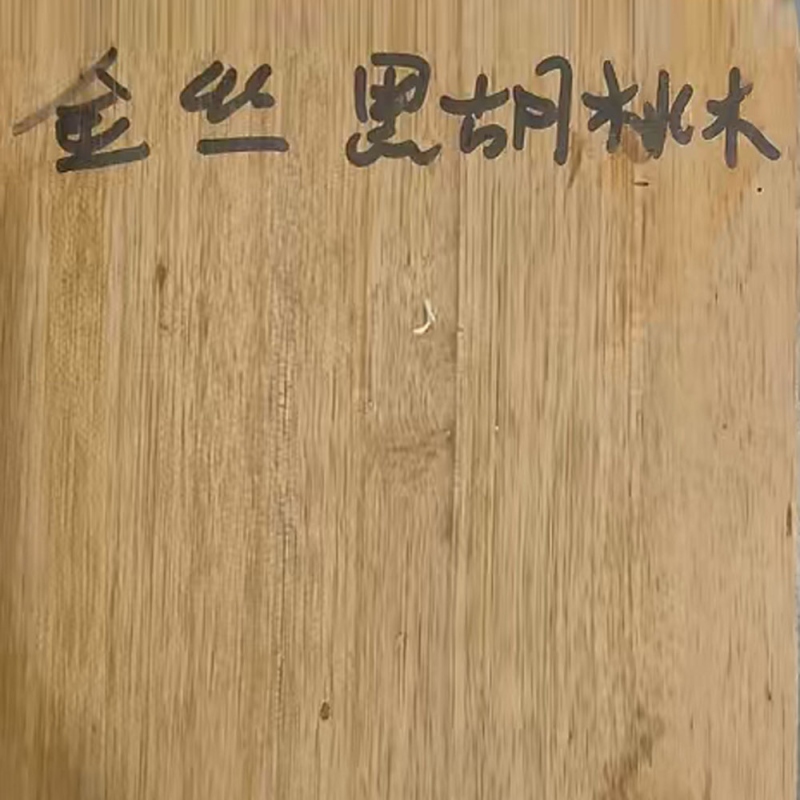 金丝黑胡桃木